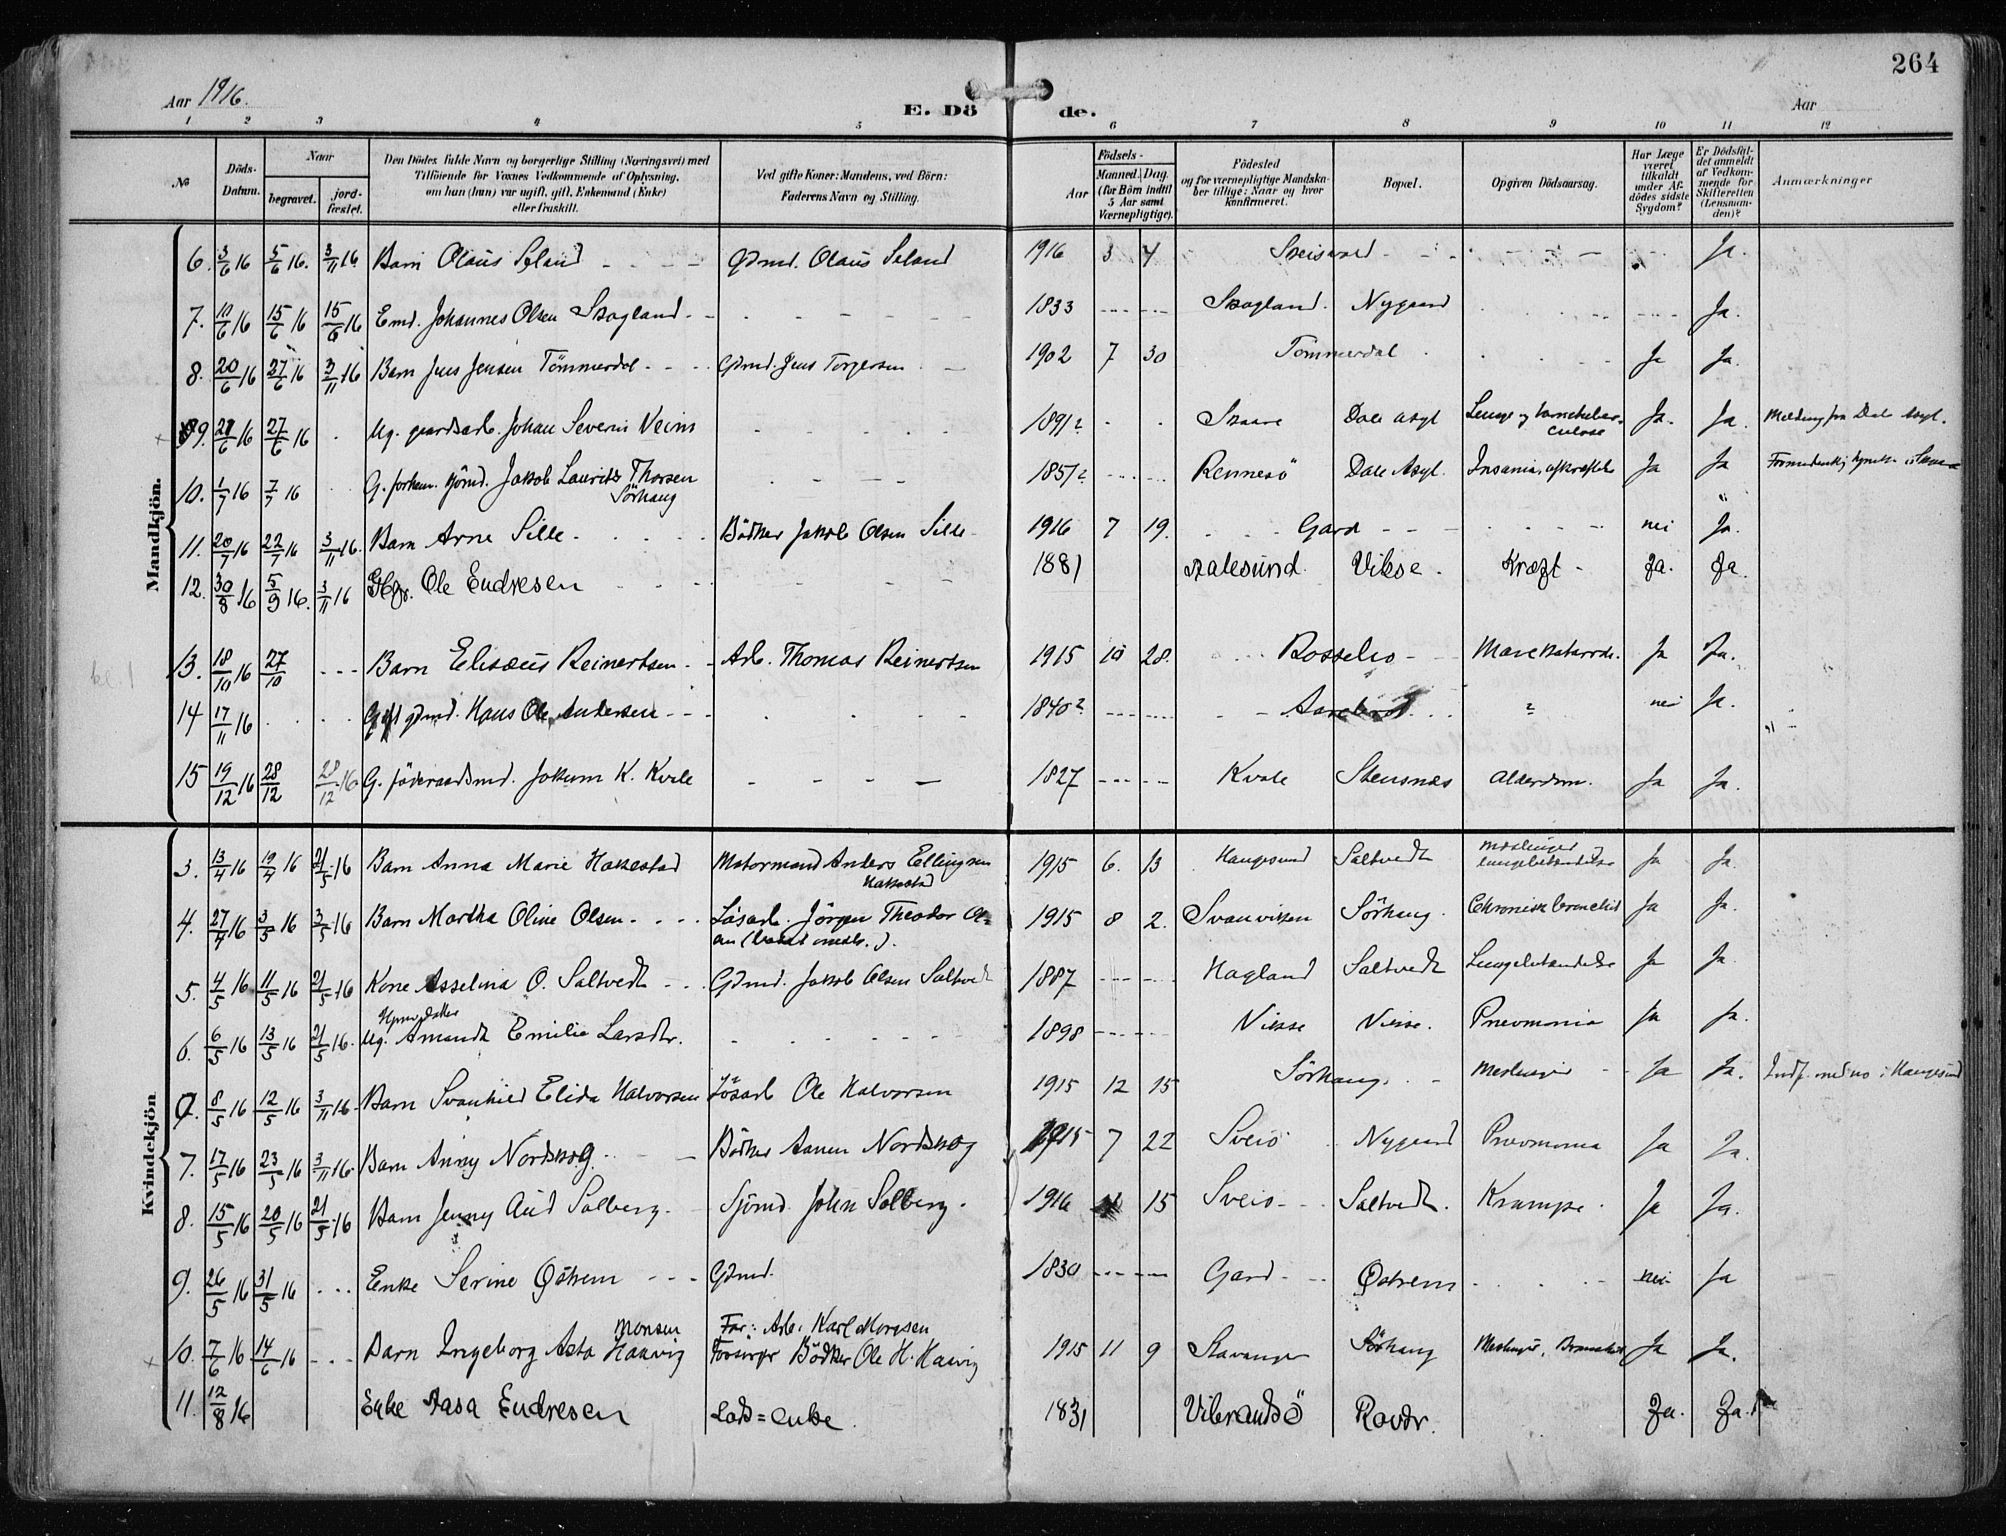 264
Aar 1916.
E. Dö de.
Aar
1 2 3 4 5 6 7 8 9 10 11 12
No
Döds-Datum.
Naar
begravet.
jord-fæstet.
Den Dödes fulde Navn og borgerlige Stilling (Næringsvei) med
Tilföiende for Voxnes Vedkommende af Oplysning,
om han (hun) var ugift, gift, Enkemand (Enke)
eller fraskilt.
Ved gifte Koner: Mandens, ved Börn:
Faderens Navn og Stilling.
Födsels-
Aar
Maaned. Dag.
(for Börn indtil
5 Aar samt
Værnepligtige).
Födested
og for værnepligtige Mandska-
ber tillige: Naar og hvor
konfirmeret.
Bopæl.
Opgiven Dödsaarsag.
Har Læge
været
tilkaldt
under Af-
dödes sidste
Sygdom?
Er Dödsfal-
det anmeldt
af Vedkom-
mende for
Skifteretten
(Lensman-
den)?
Anmærkninger
Mandkjön.
6. 3/6 16 5/6 16. 3/11 16 Barn Olaus Seland Gdmd. Olaus Seland 1916 3 4 Ja.
7. 10/6 16 15/6 16 15/6 16 Emd. Johannes Olsen Skogland 1833 Skogland. Nygaard Ja.
8. 20/6 16 27/6 16 3/11 16 Barn Jens Jensen Tömmerdal Gdmd. Jens Torgersen 1902 7 30 Tömmerdal Ja Ja.
9. 21/6 16 27/6 16 Ug. gaardsarb. Johan Severin Veim 1891? Skaare Dale Asyl Lunge og tarmtuber-
culose Ja. Ja. Melding fra Dale Asyl.
10. 1/7 16 7/7 16 G. forhen. Sjömd. Jakob Laurits Thorsen
Sörhaug 1851? Rennesö Dale Asyl. Insania, Ja Ja
11. 20/7 16 22/7 16 3/11 16. Barn Arne Sille Bödker Jakob Olsen Sille 1916 7 19. Gard nei Ja.
12. 30/8 16 5/9 16. 3/11 16 Ole Endresen 1881 Aalesund. Vikse. Kræft Ja. Ja.
13. 18/10 16 27/10 Barn Elisæus Reinertsen Arb. Thomas Reinertsen 1915 10 28. Ja Ja.
14 17/11 16 Gift gdmd. Hans Ole Andersen 1840? ? nei Ja.
15 19/12 16 28/12 28/12 16 G. föderaadsmd. Jokum K. Kvale 1827 Kvale Stensnæs Alderdom. Ja Ja.
Kvindekjön
3. 13/4 16 19/4 16 21/5 16 Barn Anna Marie Hakkestad Motormand Anders Ellingsen
Hakkestad 1915 6. 13 Haugesund Saltvedt Mæslinger
lungebetændelse Ja Ja.
4. 27/4 16 3/5 16 3/5 16 Barn Martha Oline Olsen Lösarb. Jörgen Theodor Ol-
sen 1915 8 2. Svanviken Sörhaug. Chronisk bronchit Ja Ja.
5. 4/5 16 11/5 16 21/5 16 Kone Asselina O. Saltvedt Gdmd. Jakob Olsen Saltvedt 1887 Hagland Saltvedt Lungebetændelse Ja Ja.
6. 6/5 16 13/5 16 21/5 16. Ug. Amanda Emilie Larsdtr. 1898 Vikse Vikse. Pneumonia Ja Ja.
8/5 16 12/5 16 3/11 16 Barn Svanhild Elida Halvorsen Lösarb Ole Halvorsen 1915 12 15 Sörhaug Meslinger Ja Ja. Indf. med no i Haugesund
7. 17/5 16 23/5 16 3/11 16 Barn Anny Nordskog Bödker Nordskog 1915 7 22 Sveio Nygaard Pneumonia Ja Ja.
8. 15/5 16 20/5 16 21/5 16 Barn Jenny Aud Solberg Sjömd. John Solberg. 1916 15 Sveio Saltvedt. Krampe Ja Ja.
9. 26/5 16 31/5 16 Enke Serine Östrem Gdmd. 1830 Gard Östrem nei Ja
10. 7/6 16 14/6 16 Barn Ingeborg Asta Monsen Haavig Far: Arb. Karl Monsen
Forsörger Bödker Ole H. Haavig 1915 11 9 Stavanger Sörhaug Meslinger, Ja Ja.
11. 12/8 16 Enke Aasa Endresen Lods=enke 1831 Vibrandsö Rovdr. Ja. Ja.